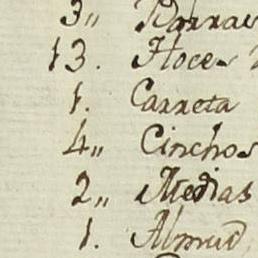 3,, Barras
13. Hoces
1. Carreta
4,, Cinchos
2,, Medias
1. Almud